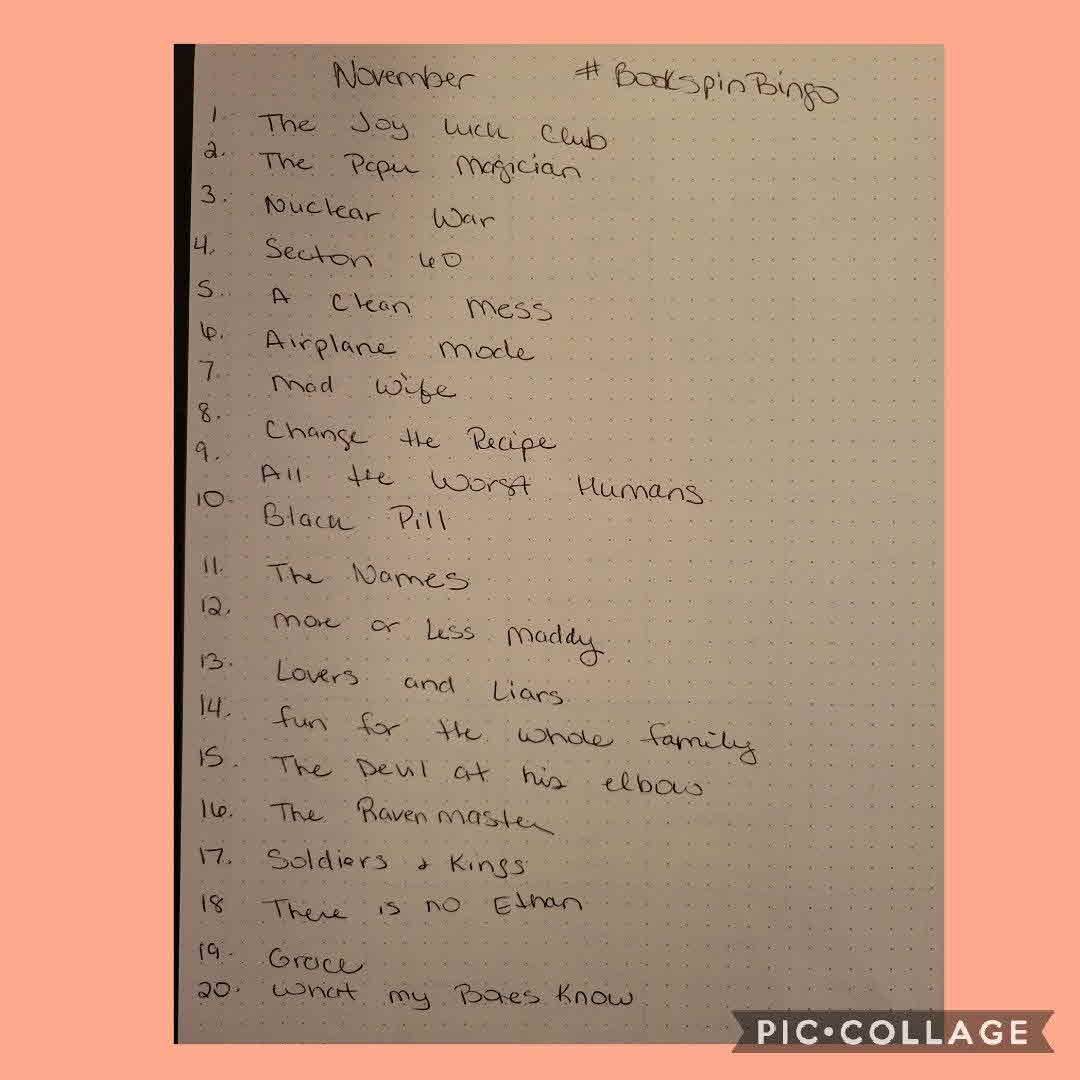 November #BookspinBingo
1. The Joy Luck Club
2. The Paper Magician
3. Nuclear War
4. Secton 60
5. A Clean Mess
6. Airplane mode
7. Mad Wife
8. Change the Recipe
9. All the Worst Humans
10. Black Pill
11. The Names
12. More or Less maddy
13. Lovers and Liars
14. fun for the whole family
15. The Devil at his elbow
16. The Ravenmaster
17. Soldiers & Kings
18 There is no Ethan
19. Grace
20. What my Bones Know
PIC•COLLAGE